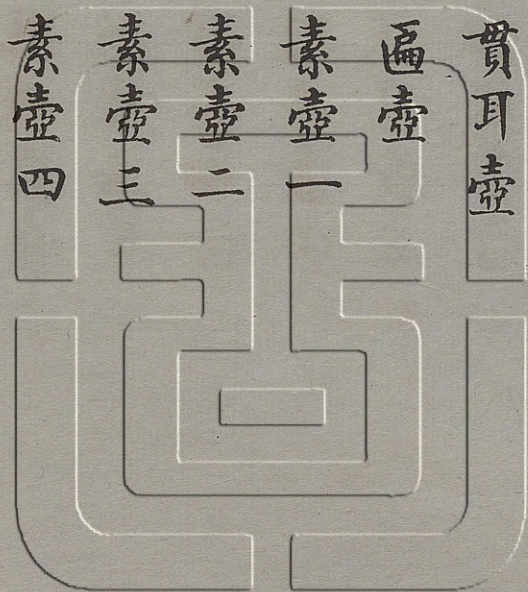 貫耳壺
匾壺
素壺一
素壺二
素壺三
素壺四